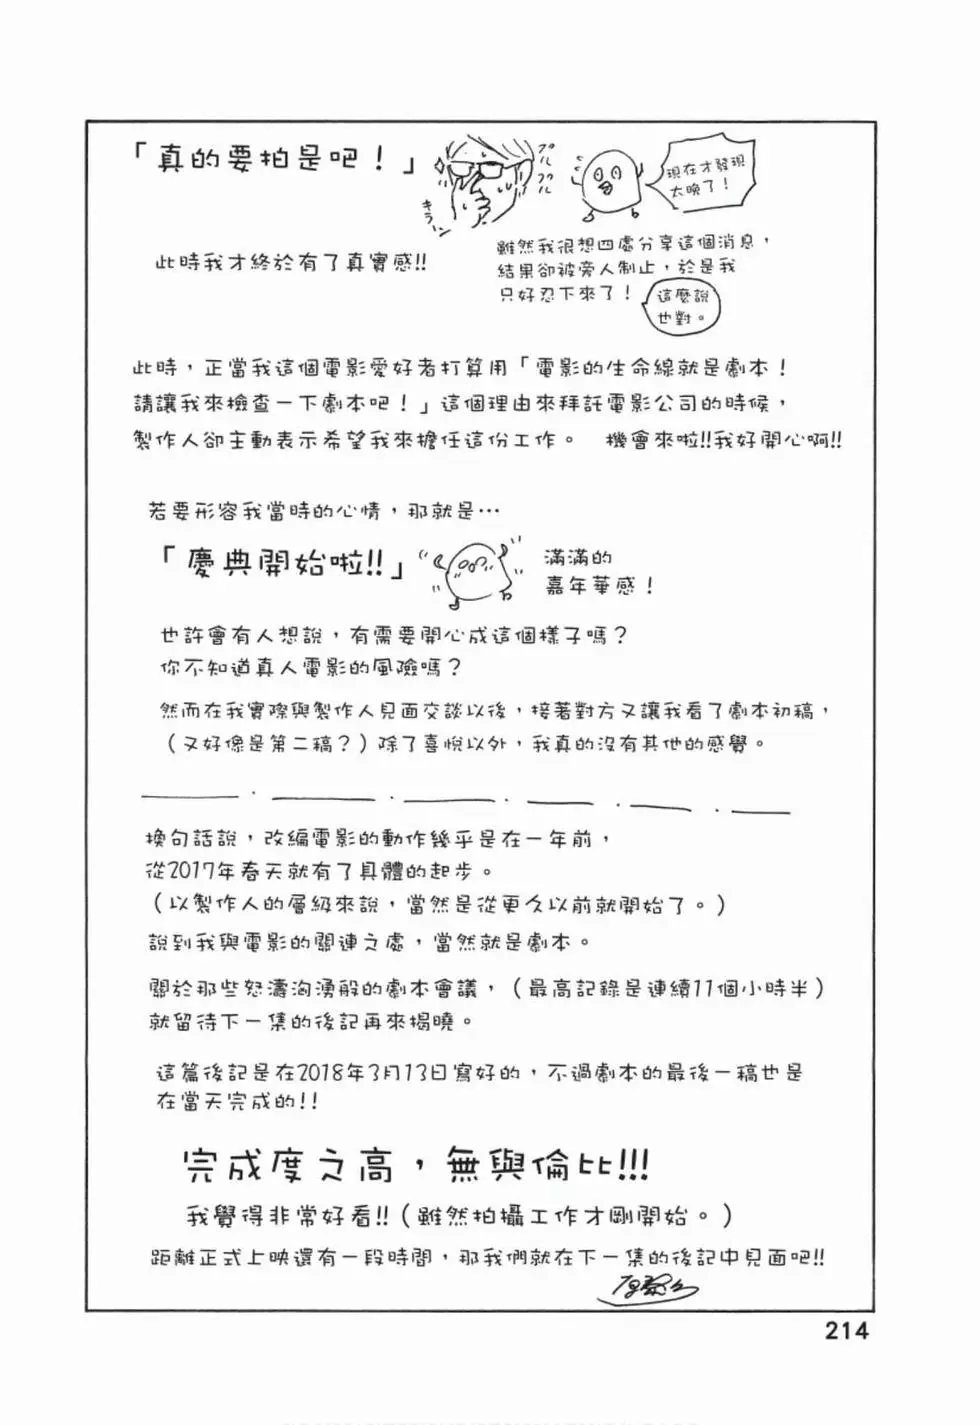 「真的要拍是吧！」
プルプル
キラーン
現在才發現
太晚了！
此時我才終於有了真實感!!
雖然我很想四處分享這個消息，
結果卻被旁人制止，於是我
只好忍下來了！
這麼說
也對。
此時，正當我這個電影愛好者打算用「電影的生命線就是劇本！
請讓我來檢查一下劇本吧！」這個理由來拜託電影公司的時候，
製作人卻主動表示希望我來擔任這份工作。　機會來啦!!我好開心啊!!
若要形容我當時的心情，那就是…
「慶典開始啦!!」
滿滿的
嘉年華感！
也許會有人想說，有需要開心成這個樣子嗎？
你不知道真人電影的風險嗎？
然而在我實際與製作人見面交談以後，接著對方又讓我看了劇本初稿，
（又好像是第二稿？）除了喜悅以外，我真的沒有其他的感覺。
換句話說，改編電影的動作幾乎是在一年前，
從2017年春天就有了具體的起步。
（以製作人的層級來說，當然是從更久以前就開始了。）
說到我與電影的關連之處，當然就是劇本。
關於那些怒濤洶湧般的劇本會議，（最高記錄是連續11個小時半）
就留待下一集的後記再來揭曉。
這篇後記是在2018年3月13日寫好的，不過劇本的最後一稿也是
在當天完成的!!
完成度之高，無與倫比!!!
我覺得非常好看!!（雖然拍攝工作才剛開始。）
距離正式上映還有一段時間，那我們就在下一集的後記中見面吧!!
214